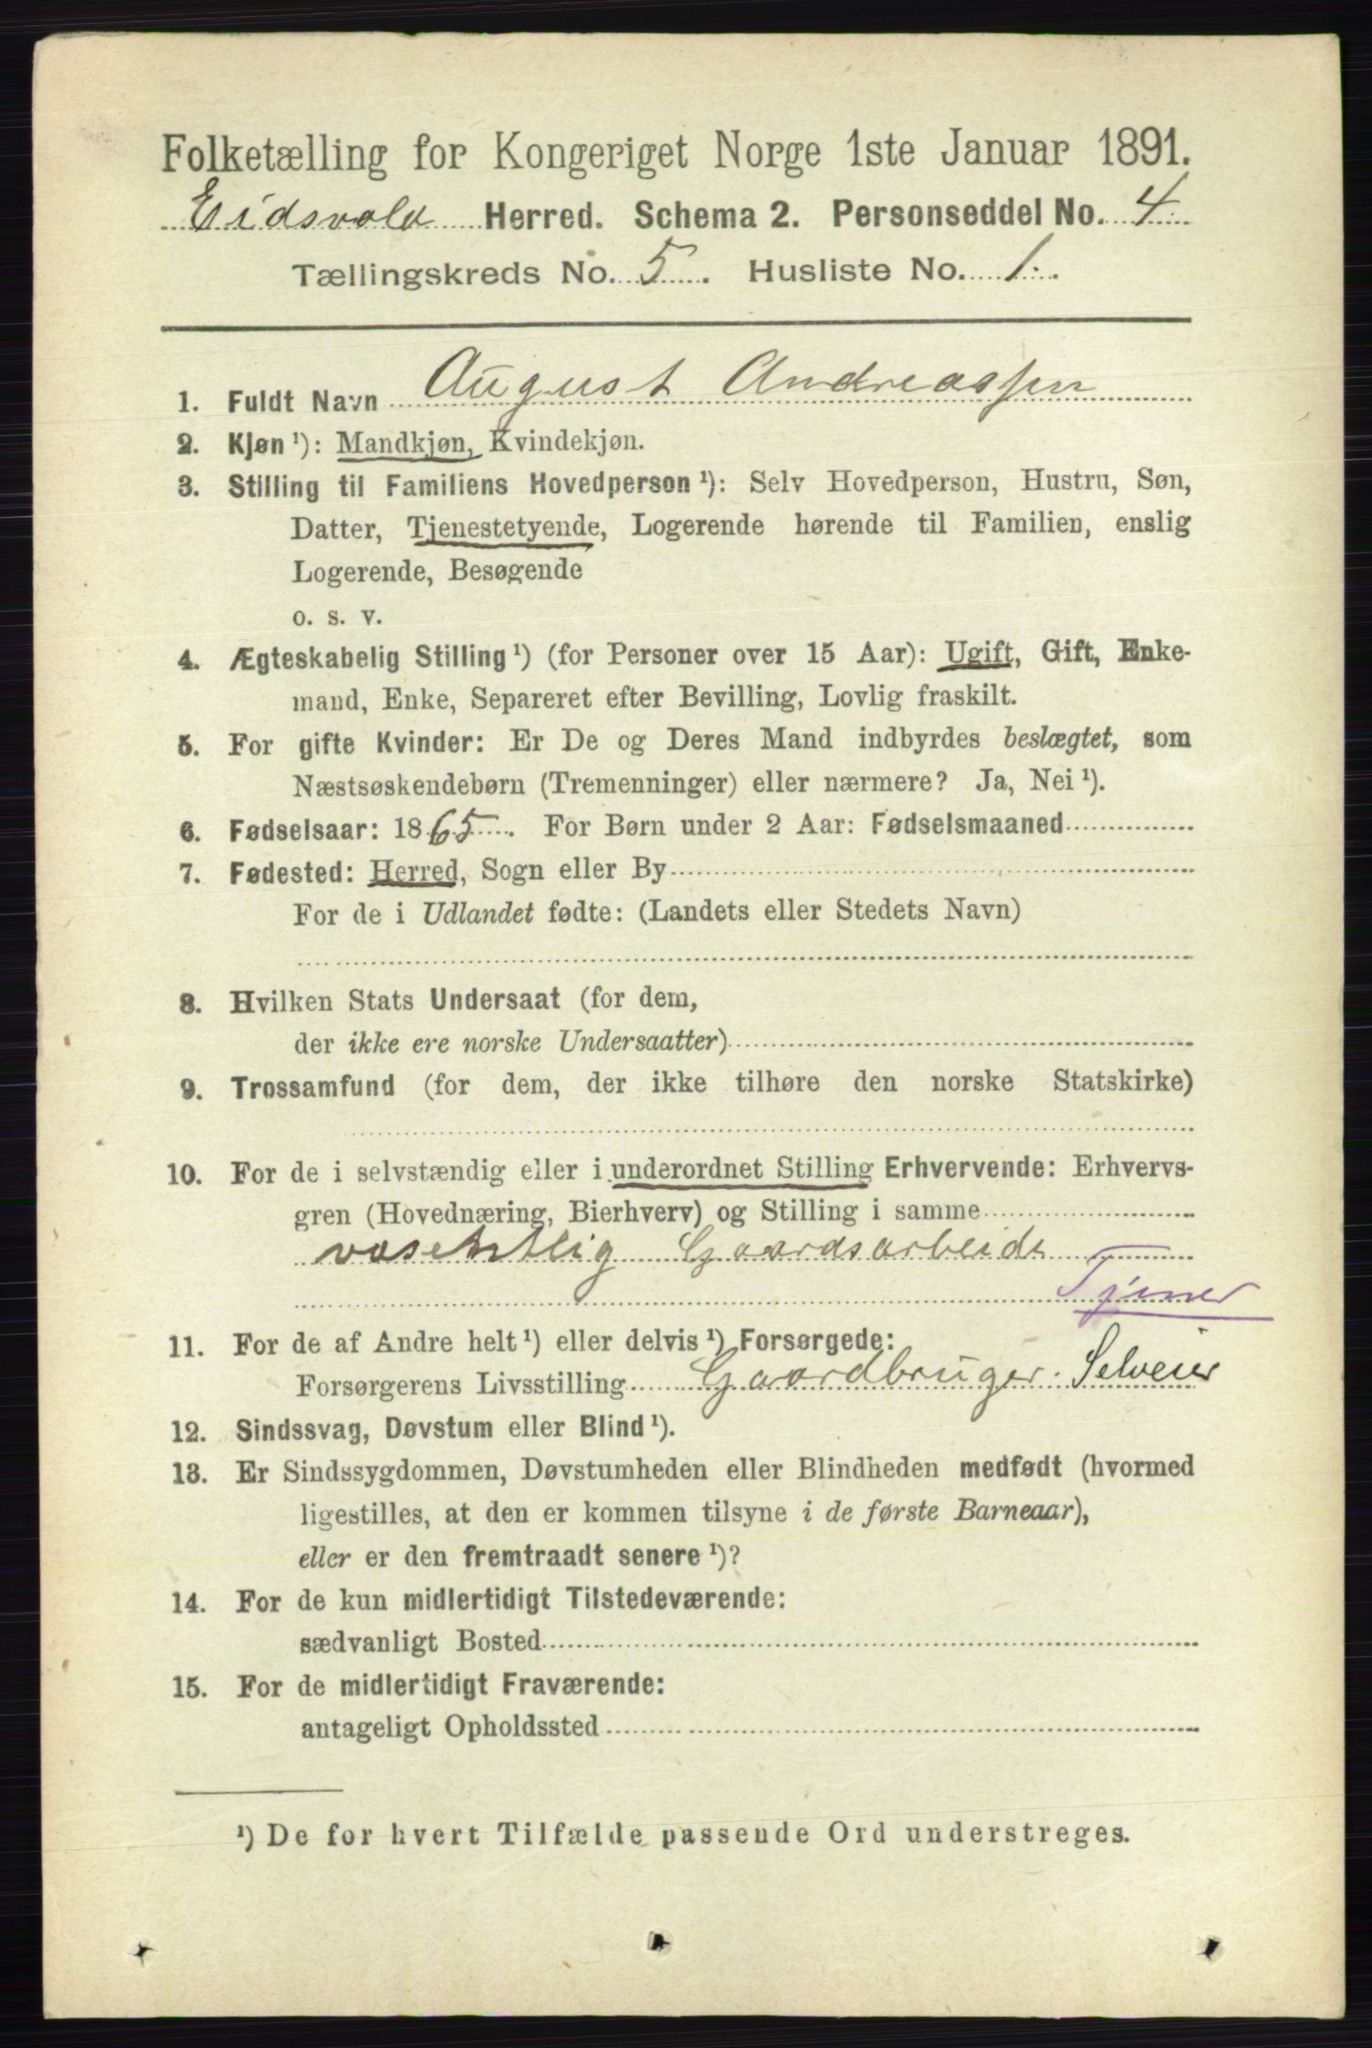 Folketælling for Kongeriget Norge 1ste Januar 1891.
Eidsvold Herred. Schema 2. Personseddel No. 4.
Tællingskreds No. 5. Husliste No. 1.
1. Fuldt Navn August Andreassen
2. Kjøn ¹): Mandkjøn, Kvindekjøn.
3. Stilling til Familiens Hovedperson ¹): Selv Hovedperson, Hustru, Søn,
Datter, Tjenestetyende, Logerende hørende til Familien, enslig
Logerende, Besøgende
o. s. v.
4. Ægteskabelig Stilling ¹) (for Personer over 15 Aar): Ugift, Gift, Enke-
mand, Enke, Separeret efter Bevilling, Lovlig fraskilt.
5. For gifte Kvinder: Er De og Deres Mand indbyrdes beslægtet, som
Næstsøskendebørn (Tremenninger) eller nærmere? Ja, Nei ¹).
6. Fødselsaar: 1865. For Børn under 2 Aar: Fødselsmaaned
7. Fødested: Herred, Sogn eller By
For de i Udlandet fødte: (Landets eller Stedets Navn)
8. Hvilken Stats Undersaat (for dem,
der ikke ere norske Undersaatter)
9. Trossamfund (for dem, der ikke tilhøre den norske Statskirke)
10. For de i selvstændig eller i underordnet Stilling Erhvervende: Erhvervs-
gren (Hovednæring, Bierhverv) og Stilling i samme
væsentlig Gaardsarbeide
Tjener
11. For de af Andre helt ¹) eller delvis ¹) Forsørgede:
Forsørgerens Livsstilling Gaardbruger. Selveier
12. Sindssvag, Døvstum eller Blind ¹).
13. Er Sindssygdommen, Døvstumheden eller Blindheden medfødt (hvormed
ligestilles, at den er kommen tilsyne i de første Barneaar),
eller er den fremtraadt senere ¹)?
14. For de kun midlertidigt Tilstedeværende:
sædvanligt Bosted
15. For de midlertidigt Fraværende:
antageligt Opholdssted
¹) De for hvert Tilfælde passende Ord understreges.